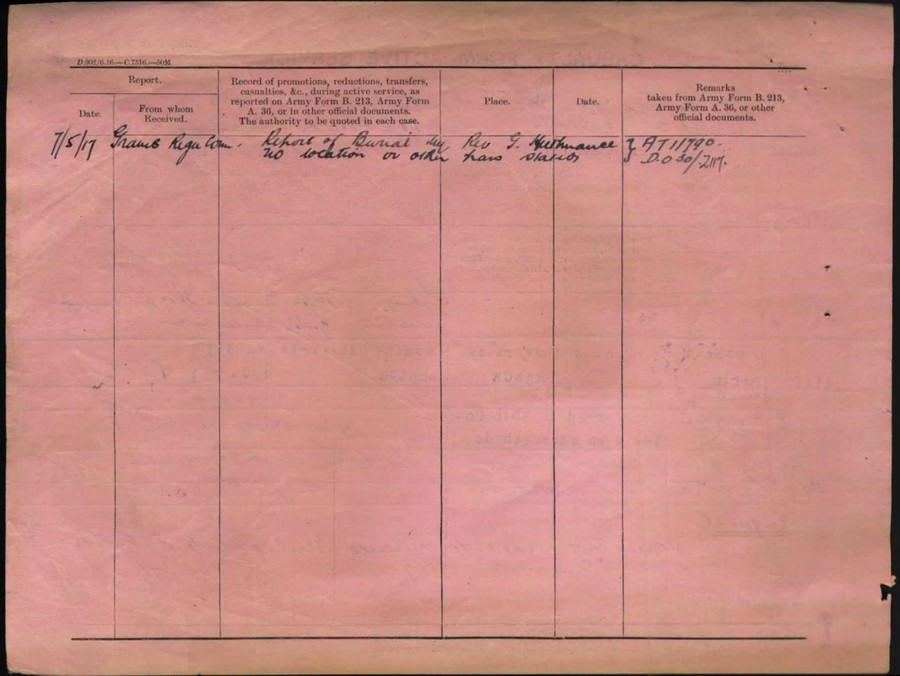 D.902/6.16.—C.7516.—50M.
Report.
Date.
From whom
Received.
Record of promotions, reductions, transfers,
casualties, &c., during active service, as
reported on Army Form B. 213, Army Form
A. 36, or in other official documents.
The authority to be quoted in each case.
Place.
Date.
Remarks
taken from Army Form B. 213,
Army Form A. 36, or other
official documents.
7/5/17 Graves Regn Com. Report of Burial by Rev G. } AT 11790.
no location or other stated D.O 30/